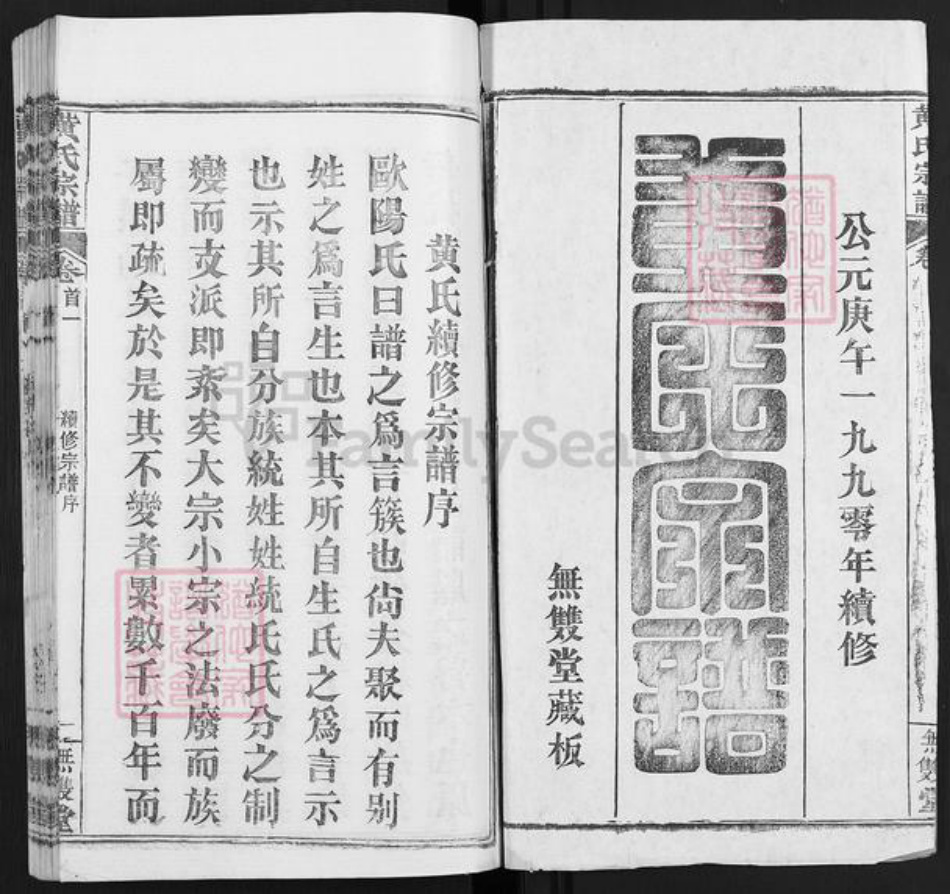 黄氏宗譜
公元庚午一九九零年續修
黃氏宗譜
無雙堂藏板
無雙堂
黄氏續修宗譜序
歐陽氏曰譜之爲言簇也尙夫聚而有别
姓之爲言生也本其所自生氏之爲言示
也示其所自分族統姓姓統氏氏分之制
變而支派即紊矣大宗小宗之法廢而族
屬即疏矣於是其不變者累數千百年而
黄氏宗譜
卷首一
續修宗譜序
無雙堂
FamilySearch